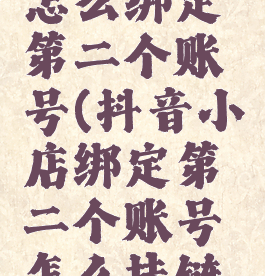 怎么绑定
第二个账
号(抖音小
店绑定第
二个账号
怎么挂链